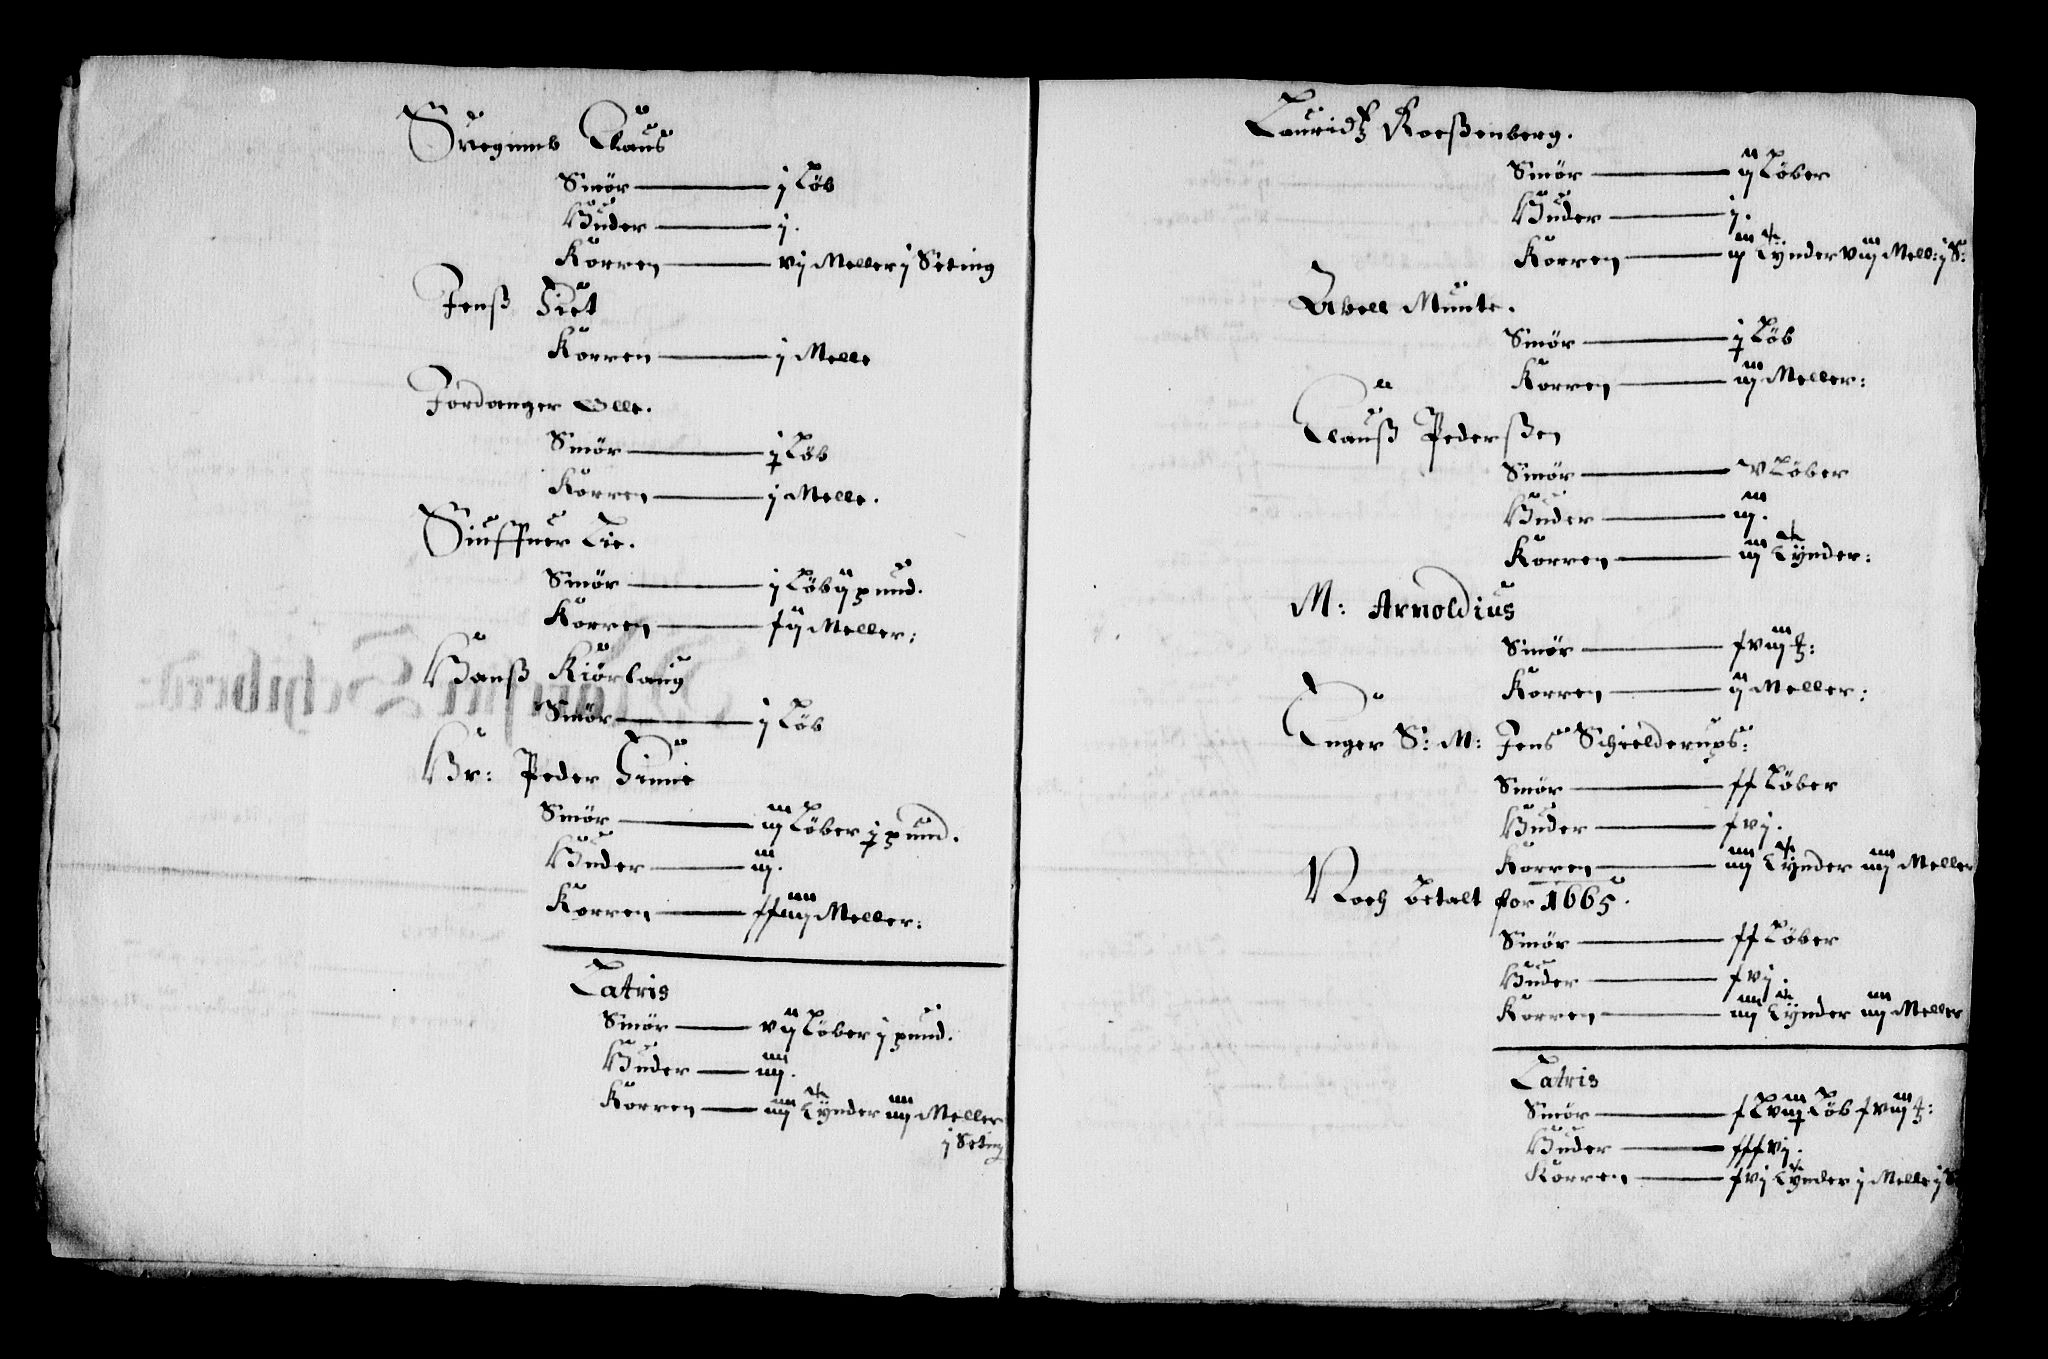 Claus
Smör j Löb
Huder j.
Korren vj Meller j Seting
Jenß
Korren j Melle
Jordanger Olle.
Smör j Löb
Korren j Melle.
Smör j Löb ij pund.
Korren xij Meller:
Hanß Kiörlaug
Smör j Löb
Hr: Peder Finne
Smör iij Löber j pund.
Huder iij.
Korren xxiiij Meller:
Latris
Smör vij Löber j pund.
Huder iiij.
Korren iiij Tynder iiij Meller
j Seting
Lauridtz Roeßenberg.
Smör ij Löber
Huder j.
Korren iij Tynder viij Mell: j S:
Abell Munte.
Smör j Löb
Korren iij Meller:
Clauß Pederßen
Smör v Löber
Huder iij.
Korren iij Tynder:
M: Arnoldius
Smör xviij
Korren ij Meller:
Enger S: M: Jens Schielderups:
Smör xx Löber
Huder xvj.
Korren iiij Tynder iiij Meller
Noch betalt for 1665.
Smör xx Löber
Huder xvj.
Korren iiij Tynder iiij Meller
Latris
Smör Löb xviij
Huder xxxvj.
Korren xvj Tynder j Melle j S